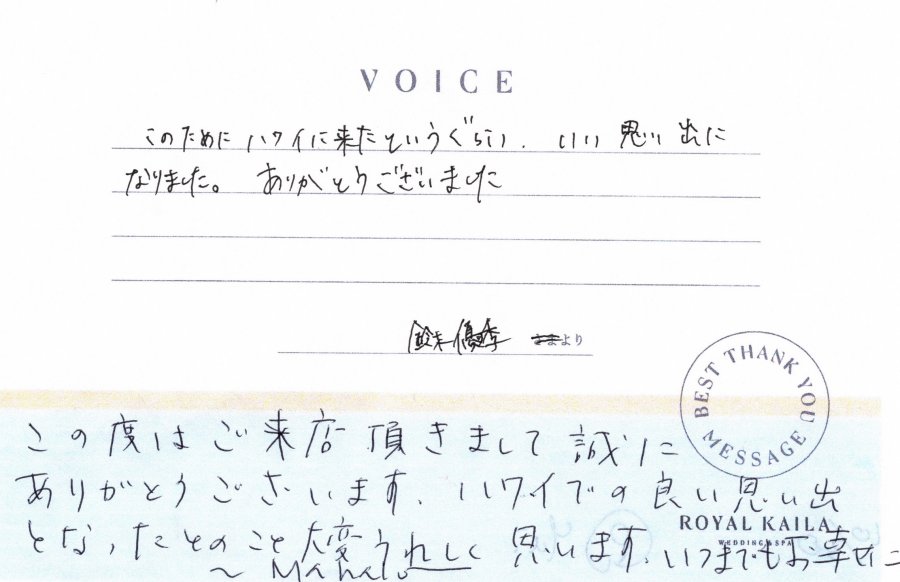 VOICE
このために ハワイに来たというぐらい、いい思い出に
なりました。 ありがとうございました
鈴木優季 さまより
BEST THANK YOU MESSAGE
この度はご来店頂きまして誠に
ありがとうございます。ハワイでの良い思い出
ROYAL KAILA
WEDDING & SPA
となったとのこと大変うれしく思います。いつまでもお幸せに